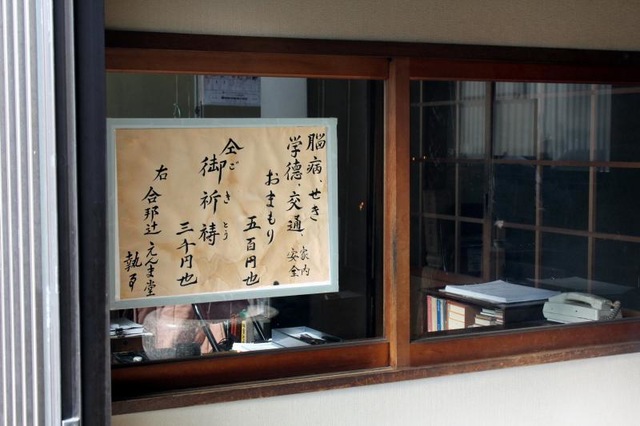 脳病、せき
学徳、交通、家内安全
おまもり
五百円也
仝
御祈祷
ごきとう
三千円也
右 合邦辻 えんま堂
執事